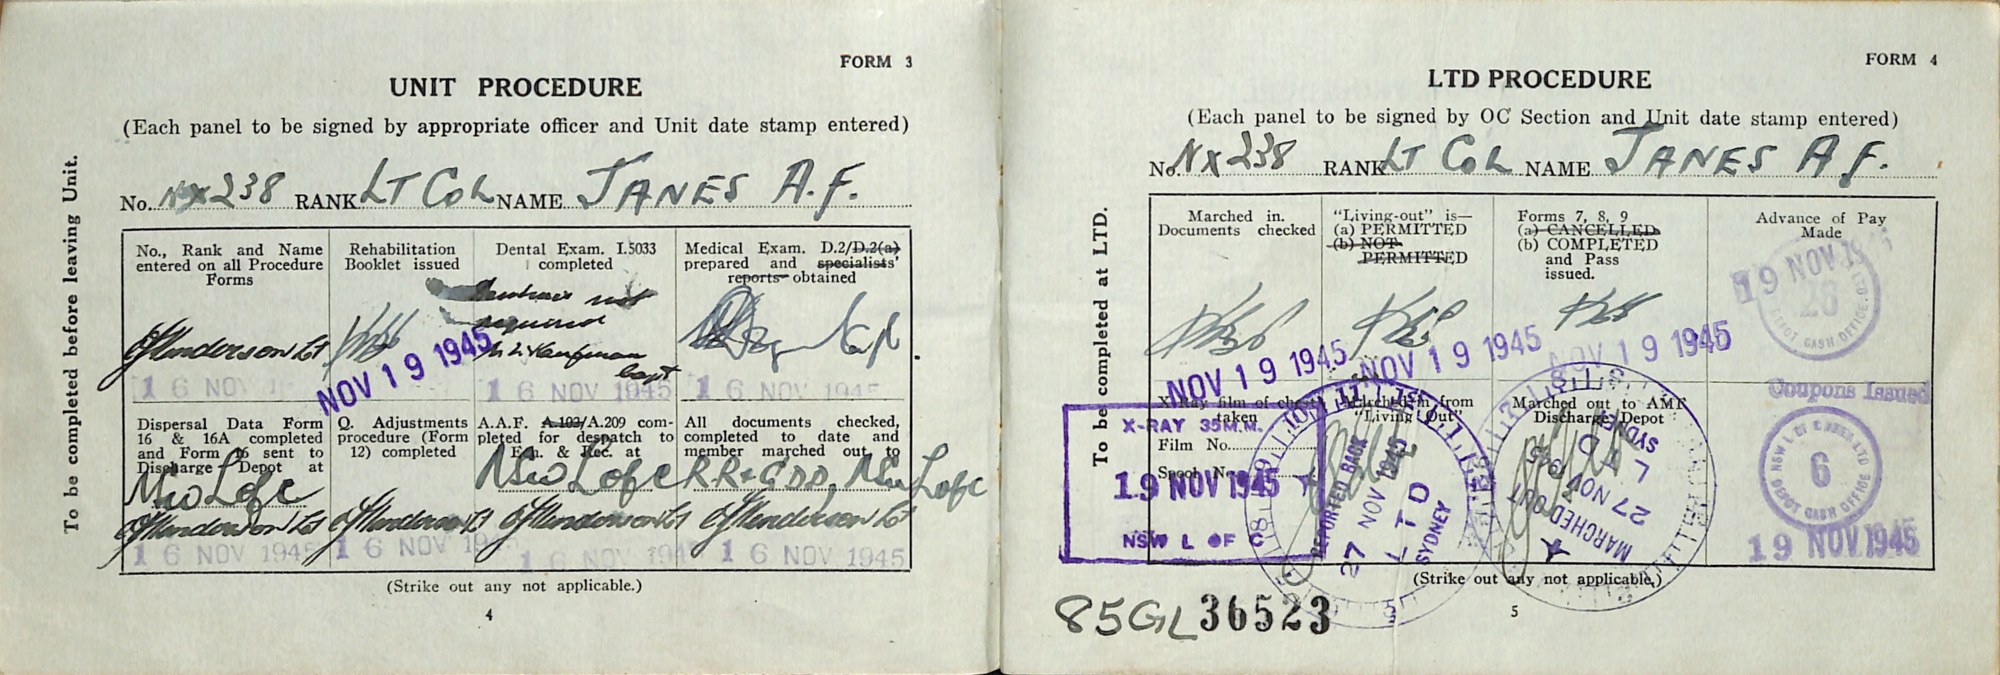 FORM 3
UNIT PROCEDURE
(Each panel to be signed by appropriate officer and Unit date stamp entered)
To be completed before leaving Unit.
No. NX238 RANK LT COL NAME JANES A.F.
No., Rank and Name
entered on all Procedure
Forms
Henderson Lt
16 NOV 1
Rehabilitation
Booklet issued
NOV 19 1945
Dental Exam. I.5033
completed
not
required
Capt
16 NOV 1945
Medical Exam. D.2/D.2(a)
prepared and specialists'
reports obtained
Capt
16 NOV 1945
Dispersal Data Form
16 & 16A completed
and Form 26 sent to
Discharge Depot at
NSW LofC
Henderson Lt
16 NOV 1945
Q. Adjustments
procedure (Form
12) completed
Henderson Lt
16 NOV 19
A.A.F. A.103/A.209 com-
pleted for despatch to
Ech. & Rec. at
NSW LofC
Henderson Lt
16 NOV 194
All documents checked,
completed to date and
member marched out to
RR&GDD, NSW LofC
Henderson Lt
16 NOV 1945
(Strike out any not applicable.)
4
FORM 4
LTD PROCEDURE
(Each panel to be signed by OC Section and Unit date stamp entered)
To be completed at LTD.
No. NX238 RANK LT COL NAME JANES A.F.
Marched in.
Documents checked
NOV 19 1945
"Living-out" is—
(a) PERMITTED
(b) NOT
PERMITTED
NOV 19 1945
Forms 7, 8, 9
(a) CANCELLED
(b) COMPLETED
and Pass
issued.
NOV 19 1945
Advance of Pay
Made
19 NOV 1945
26
DEPOT CASH OFFICE
Coupons Issued
X-Ray film of chest
taken
Film No.
Spool No.
X-RAY 35M.M.
19 NOV 1945
NSW L OF C
March in from
"Living Out"
REPORTED BACK
27 NOV 1945
LTD
SYDNEY
Marched out to AMF
Discharge Depot
MARCHED OUT
27 NOV 1945
LTD
SYDNEY
NSW L OF C AREA LTD
6
DEPOT CASH OFFICE
19 NOV 1945
(Strike out any not applicable.)
85GL 36523
5